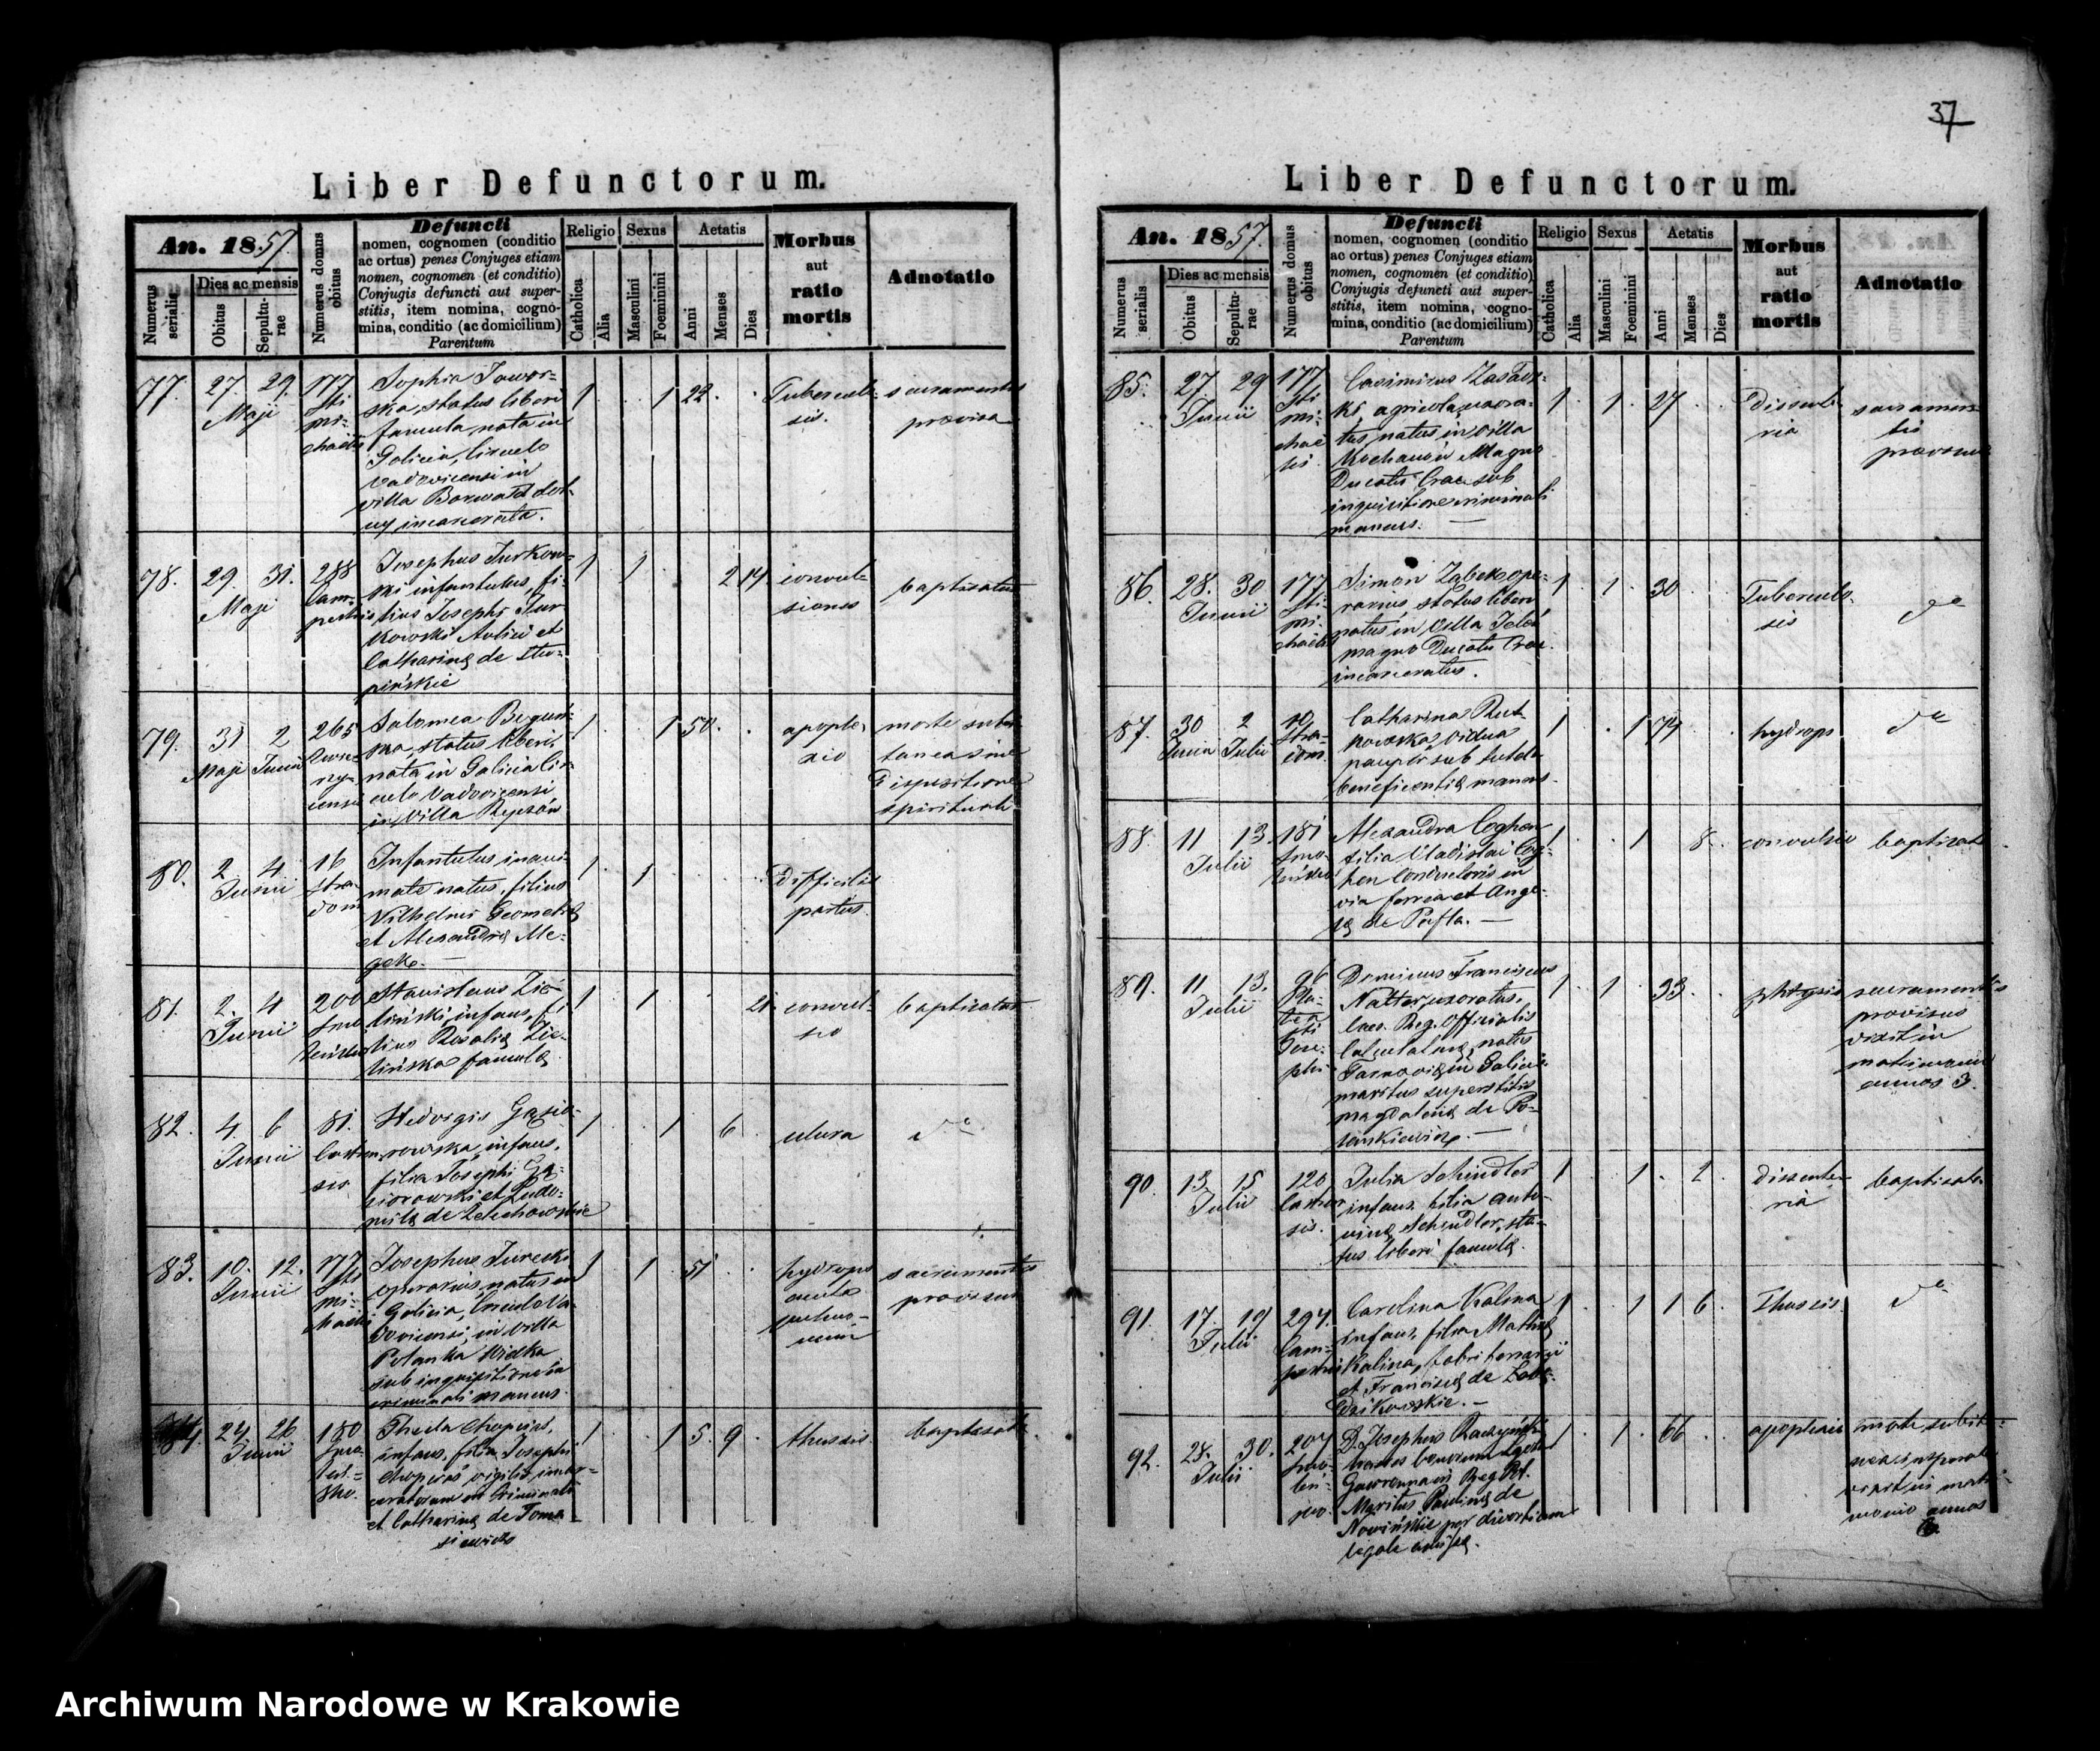 37
Liber Defunctorum.
An. 1857.
Numerus serialis
Dies ac mensis
Obitus
Sepulturae
Numerus domus obitus
Defuncti
nomen, cognomen (conditio
ac ortus) penes Conjuges etiam
nomen, cognomen (et conditio)
Conjugis defuncti aut super-
stitis, item nomina, cogno-
mina, conditio (ac domicilium)
Parentum
Religio
Catholica
Alia
Sexus
Masculini
Foeminini
Aetatis
Anni
Menses
Dies
Morbus
aut
ratio
mortis
Adnotatio
77. 27. 29. Maji
177 Sti Mi-
chaelis
Sophia Jawor-
ska, status liberi
famula, nata in
Galicia, Circulo
Vadovicensi in
villa Barwałd
incarcerata.
1 1 22
Tubercul-
sis.
sacramentis
provisa
78. 29 31. Maji
288
Cam-
pestris
Josephus Jurkow-
ski infantulus, fi-
lius Josephi Jur-
kowski Aulici et
Catharinę de Stu-
pińskie
1 1 2 14
convul-
siones
baptisatus
79. 31 Maji 2 Junii
265
Salomea
ska status liberi,
nata in Galicia Cir-
culo Vadovicensi
in Villa
1 1 50
apople-
xio
morte subi-
tanea sine
dispositione
spirituali
80. 2 4 Junii
16
Stra-
dom
Infantulus, inani-
mate natus, filius
Vilhelmi Geometrę
et Alexandrę Me-
1 1
Difficilis
partus.
81. 2. 4 Junii
200
Stanislaus Zie-
liński, infans, fi-
lius Rosalię Zie-
lińska famulę
1 1 21.
convul-
sio
baptisatus
82. 4. 6 Junii
81.
Castren-
sis
Hedvigis Gąsio-
rowska, infans,
filia Josephi Gą-
siorowski et Ludo-
vikę de Żelechowskie
1 1 6
do
83. 10. 12. Junii
177
Sti
Mi-
chaelis
Josephus
operarius, natus in
Galicia, Circulo Va-
dovicensi, in Villa
Polanka Wielka
sub inquisitione
criminali manens.
1 1 51
hydrops
sacramentis
provisus
84. 24. 26 Junii
180
Thecla
infans, filia Josephi
vigilis incar-
ceratorum
et Catharinę de Toma-
siewicz
1 1 5. 9.
thussis
baptisata
Liber Defunctorum.
An. 1857.
Numerus serialis
Dies ac mensis
Obitus
Sepulturae
Numerus domus obitus
Defuncti
nomen, cognomen (conditio
ac ortus) penes Conjuges etiam
nomen, cognomen (et conditio)
Conjugis defuncti aut super-
stitis, item nomina, cogno-
mina, conditio (ac domicilium)
Parentum
Religio
Catholica
Alia
Sexus
Masculini
Foeminini
Aetatis
Anni
Menses
Dies
Morbus
aut
ratio
mortis
Adnotatio
85. 27 29 Junii
177
Sti
Mi-
chae-
lis
Casimirus
agricola, uxora-
tus, natus in Villa
Magno
Ducatu Crac. sub
inquisitione criminali
manens.
1 1 27
Dissente-
ria
sacramen-
tis
provisus
86. 28. 30 Junii
177
Sti
Mi-
chaelis
Simon Ząbek ope-
rarius, status liberi
natus in Villa
magno Ducatu Crac.
incarceratus.
1 1 30
Tuberculo-
sis
do
87. 30 Junii 2 Julii
10
Stra-
dom.
Catharina Rut-
kowska, vidua
pauper sub tutela
beneficentię manens.
1 1 74
hydrops
do
88. 11 13. Julii
181
Alexandra Coghen
filia Vladislai Cog-
hen Conductoris in
via ferrea et Ange-
lę de Pafla.
1 1 8
convulsio
baptisata
89. 11 13. Julii
96
Pla-
tea
Sti
Jose-
phi
Dominus Franciscus
Natter, uxoratus,
Caes. Reg. Officialis
natus
Tarnovię in Galicia
maritus superstitis
Magdalenę de
1 1 33
phtysis
sacramentis
provisus
vixit in
matrimonio
annos 3.
90. 13 15 Julii
120
Castren-
sis.
Julia Schindler
infans, filia Anto-
ninę Schindler, sta-
tus liberi famulę.
1 1 2
dissente-
ria
baptisata
91. 17. 19 Julii
294.
Cam-
pestris
Carolina Kalina
infans, filia Mathię
Kalina, fabri ferrarii
et Franciscę de
1 1 1 6
Thussis
do
92. 28. 30. Julii
204
D. Josephus
haeres bonorum
Gawronnacis Reg. Pol.
Maritus Paulinę de
Nowińskie per divortium
legale
1 1 66
apoplexia
morte subita-
nea
vixit in matri-
monio annos
6.
Archiwum Narodowe w Krakowie